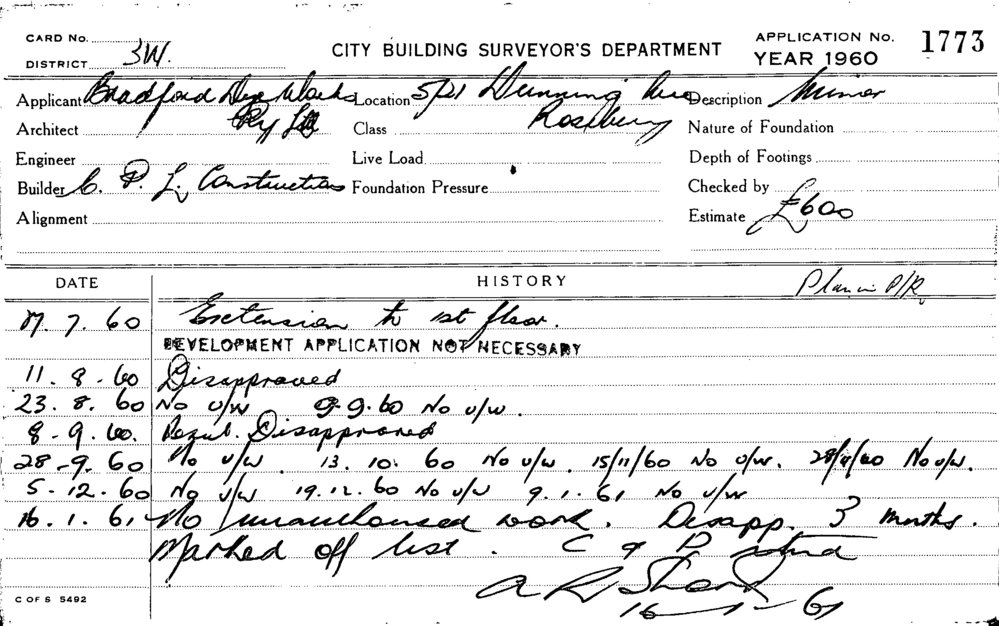 CARD No.
DISTRICT 3W.
CITY BUILDING SURVEYOR'S DEPARTMENT
APPLICATION No. 1773
YEAR 1960
Applicant Bradford Dye Works Pty Ltd
Location 5/21 Dunning Ave Rosebery
Description Minor
Architect
Class
Nature of Foundation
Engineer
Live Load
Depth of Footings
Builder C. P. L. Constructions
Foundation Pressure
Checked by
Alignment
Estimate £600
DATE
HISTORY
Plan in P/R
7. 60 Extension to 1st floor.
DEVELOPMENT APPLICATION NOT NECESSARY
11. 8. 60 Disapproved
23. 8. 60 No u/w 9.9.60 No u/w.
8-9.60. Disapproved
28-9.60 No u/w. 13. 10. 60 No u/w. 15/11/60 No u/w. No u/w.
5.12.60 No u/w 19.12.60 No u/w 9.1.61 No u/w
16.1.61 No unauthorised work. Disapp. 3 months.
Marked off list. C & D
16-1-61
C OF S 5492